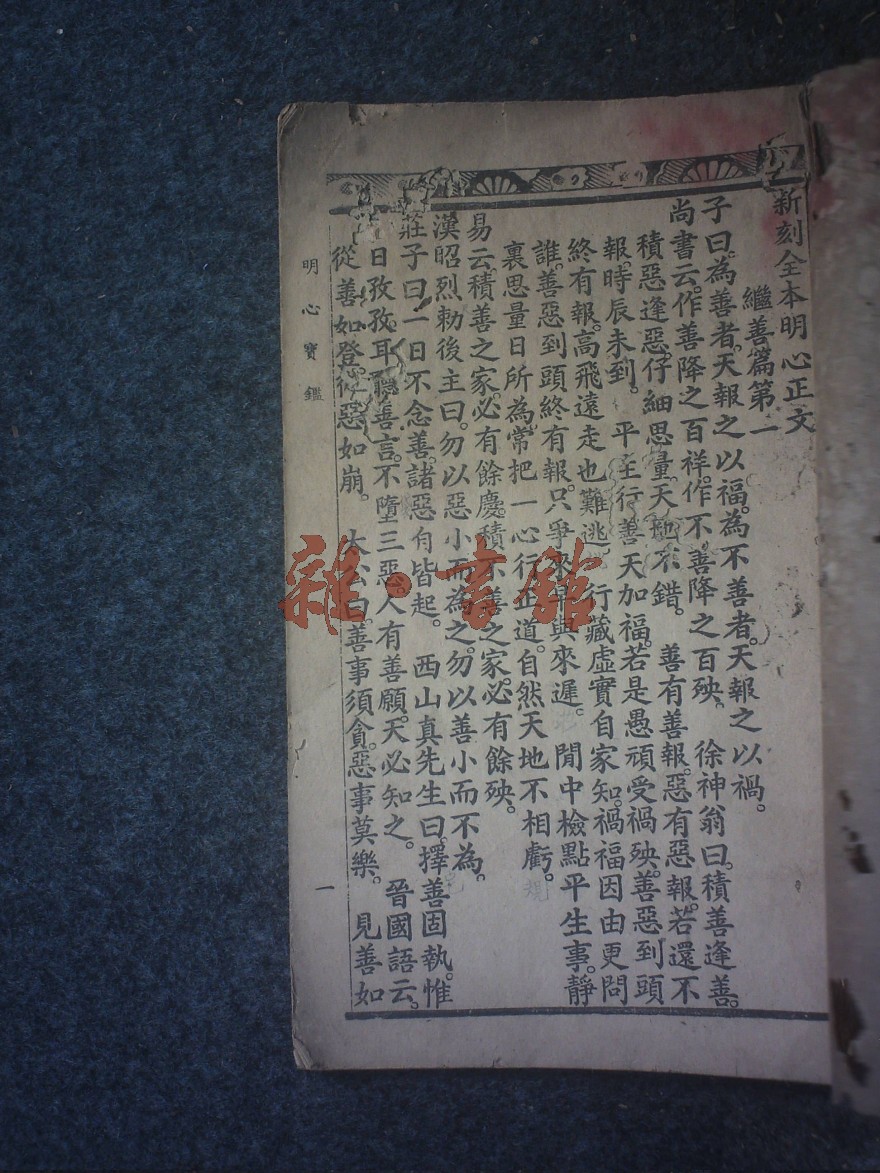 新刻全本明心正文
繼善篇第一
子曰。為善者。天報之以福。為不善者。天報之以禍。
尚書云。作善降之百祥。作不善降之百殃。 徐神翁曰。積善逢善。
積惡逢惡。仔細思量。天地不錯。 善有善報。惡有惡報。若還不
報。時辰未到。 平生行善天加福。若是愚頑受禍殃。善惡到頭
終有報。高飛遠走也難逃。 行藏虛實自家知。禍福因由更問
誰。善惡到頭終有報。只爭來早與來遲。 閒中檢點平生事。靜
裏思量日所為。常把一心行正道。自然天地不相虧。
易云。積善之家。必有餘慶。積不善之家。必有餘殃。
漢昭烈勅後主曰。勿以惡小而為之。勿以善小而不為。
莊子曰。一日不念善。諸惡自皆起。 西山真先生曰。擇善固執。惟
日孜孜。耳聽善言。不墮三惡。人有善願。天必知之。 晉國語云。
從善如登。從惡如崩。 太公曰。善事須貪。惡事莫樂。 見善如
明心寶鑑
一
雜·書館